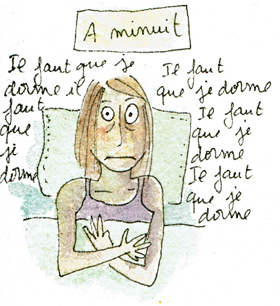 A minuit
Il faut que je
dorme il
faut
que
je
dorme
Il faut
que je dorme
Il faut
que je
dorme
Il faut
que je
dorme